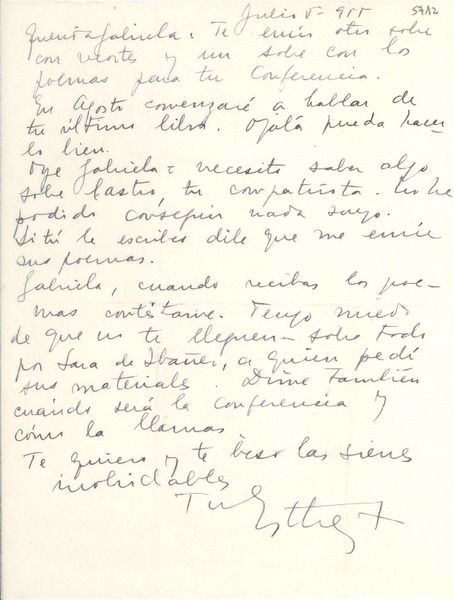 Julio 5-955 5912
Querida Gabriela: Te envío otro sobre
con recortes y un sobre con los
poemas para tu Conferencia.
En Agosto comenzaré a hablar de
tu último libro. Ojalá pueda hacer-
lo bien.
Oye Gabriela: necesito saber algo
sobre Castro, tu compatriota. No he
podido conseguir nada suyo.
Si tú le escribes dile que me envíe
sus poemas.
Gabriela, cuando recibas los poe-
mas contéstame. Tengo miedo
de que no te lleguen - sobre todo
por Sara de Ibáñez, a quien pedí
sus materiales. Dime también
cuándo será la conferencia y
cómo la llamas
Te quiero y te beso las sienes
inolvidables
Tu Esther